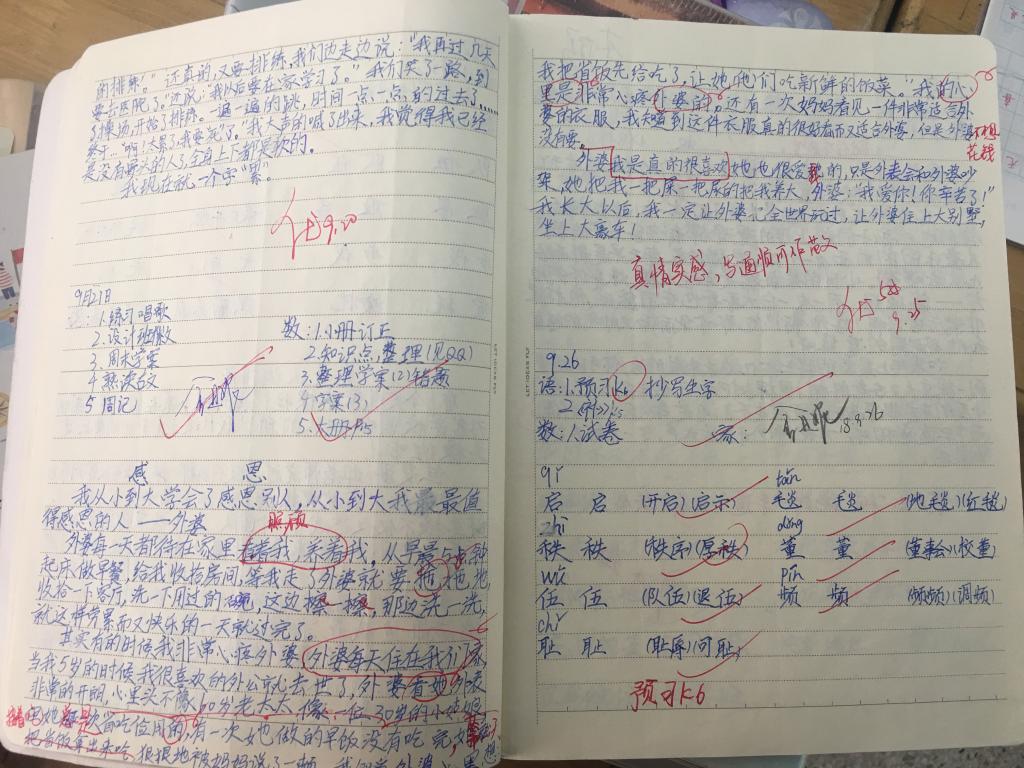 的排练。”还真的,又要排练,我们边走边说:“我再过几天
要去医院了。”还说:“我以后要在家学习了。”我们笑了一路,到
了操场,开始了排练。一遍一遍的跳,时间一点一点的过去了……
终于,“啊!太累了,我要死了。”我大声的喊了出来,我觉得我已经
是没有骨头的人,全身上下都是软的。
我现在就一个字“累”。
9.20
9月21日
1.练习唱歌
2.设计班徽
3.周末学案
4.熟读课文
5 周记
数:1.小册订正
2.知识点整理(见QQ)
3.整理学案(2)错题
4.学案(3)
5.大册P15
感 恩
我从小到大学会了感恩别人,从小到大我最最值
得感恩的人——外婆
照顾
外婆每一天都待在家里看着我,养着我,从早晨5点钟
起床做早餐,给我收拾房间,等我走了外婆就要拖拖地,
收拾一下客厅,洗一下用过的碗,这边擦一擦,那边洗一洗,
就这样劳累而又快乐的一天就过完了。
其实有的时候我非常心疼外婆,外婆每天住在我们家,
当我5岁的时候我很喜欢的外公就去世了,外婆看她外表
非常的开朗,心里头不像60岁老太太,像一位30岁的小姑娘
省吃俭用的,有一次她做的早饭没有吃完,
把省饭拿出来吃,狠狠地被妈妈说了一顿,
我把省饭先给吃了,让她(他)们吃新鲜的饭菜。”我的心
里是非常心疼外婆的,还有一次妈妈看见一件非常适合外
婆的衣服,我知道到这件衣服真的很好看而又适合外婆,但是外婆
不想
花钱
没有要。
外婆我是真的很喜欢她,她也很爱我的,只是外婆会和外婆吵
架,她把我一把屎一把尿的把我养大,外婆:“我爱你!你辛苦了!”
我长大以后,我一定让外婆把全世界玩过,让外婆住上大别墅,
坐上大豪车!
真情实感,写通顺可作范文
9.25
9.26
语:1.预习K6 抄写生字
数:1.试卷
家:
18.9.26
qǐ
tǎn
启 启 (开启)(启示) 毯 毯 (地毯)(红毯)
zhì
dǒng
秩 秩 (秩序)(厚秩) 董 董 (董事会)(校董)
wǔ
pín
伍 伍 (队伍)(退伍) 频 频 (频频)(调频)
chǐ
耻 耻 (耻辱)(可耻)
预习K6